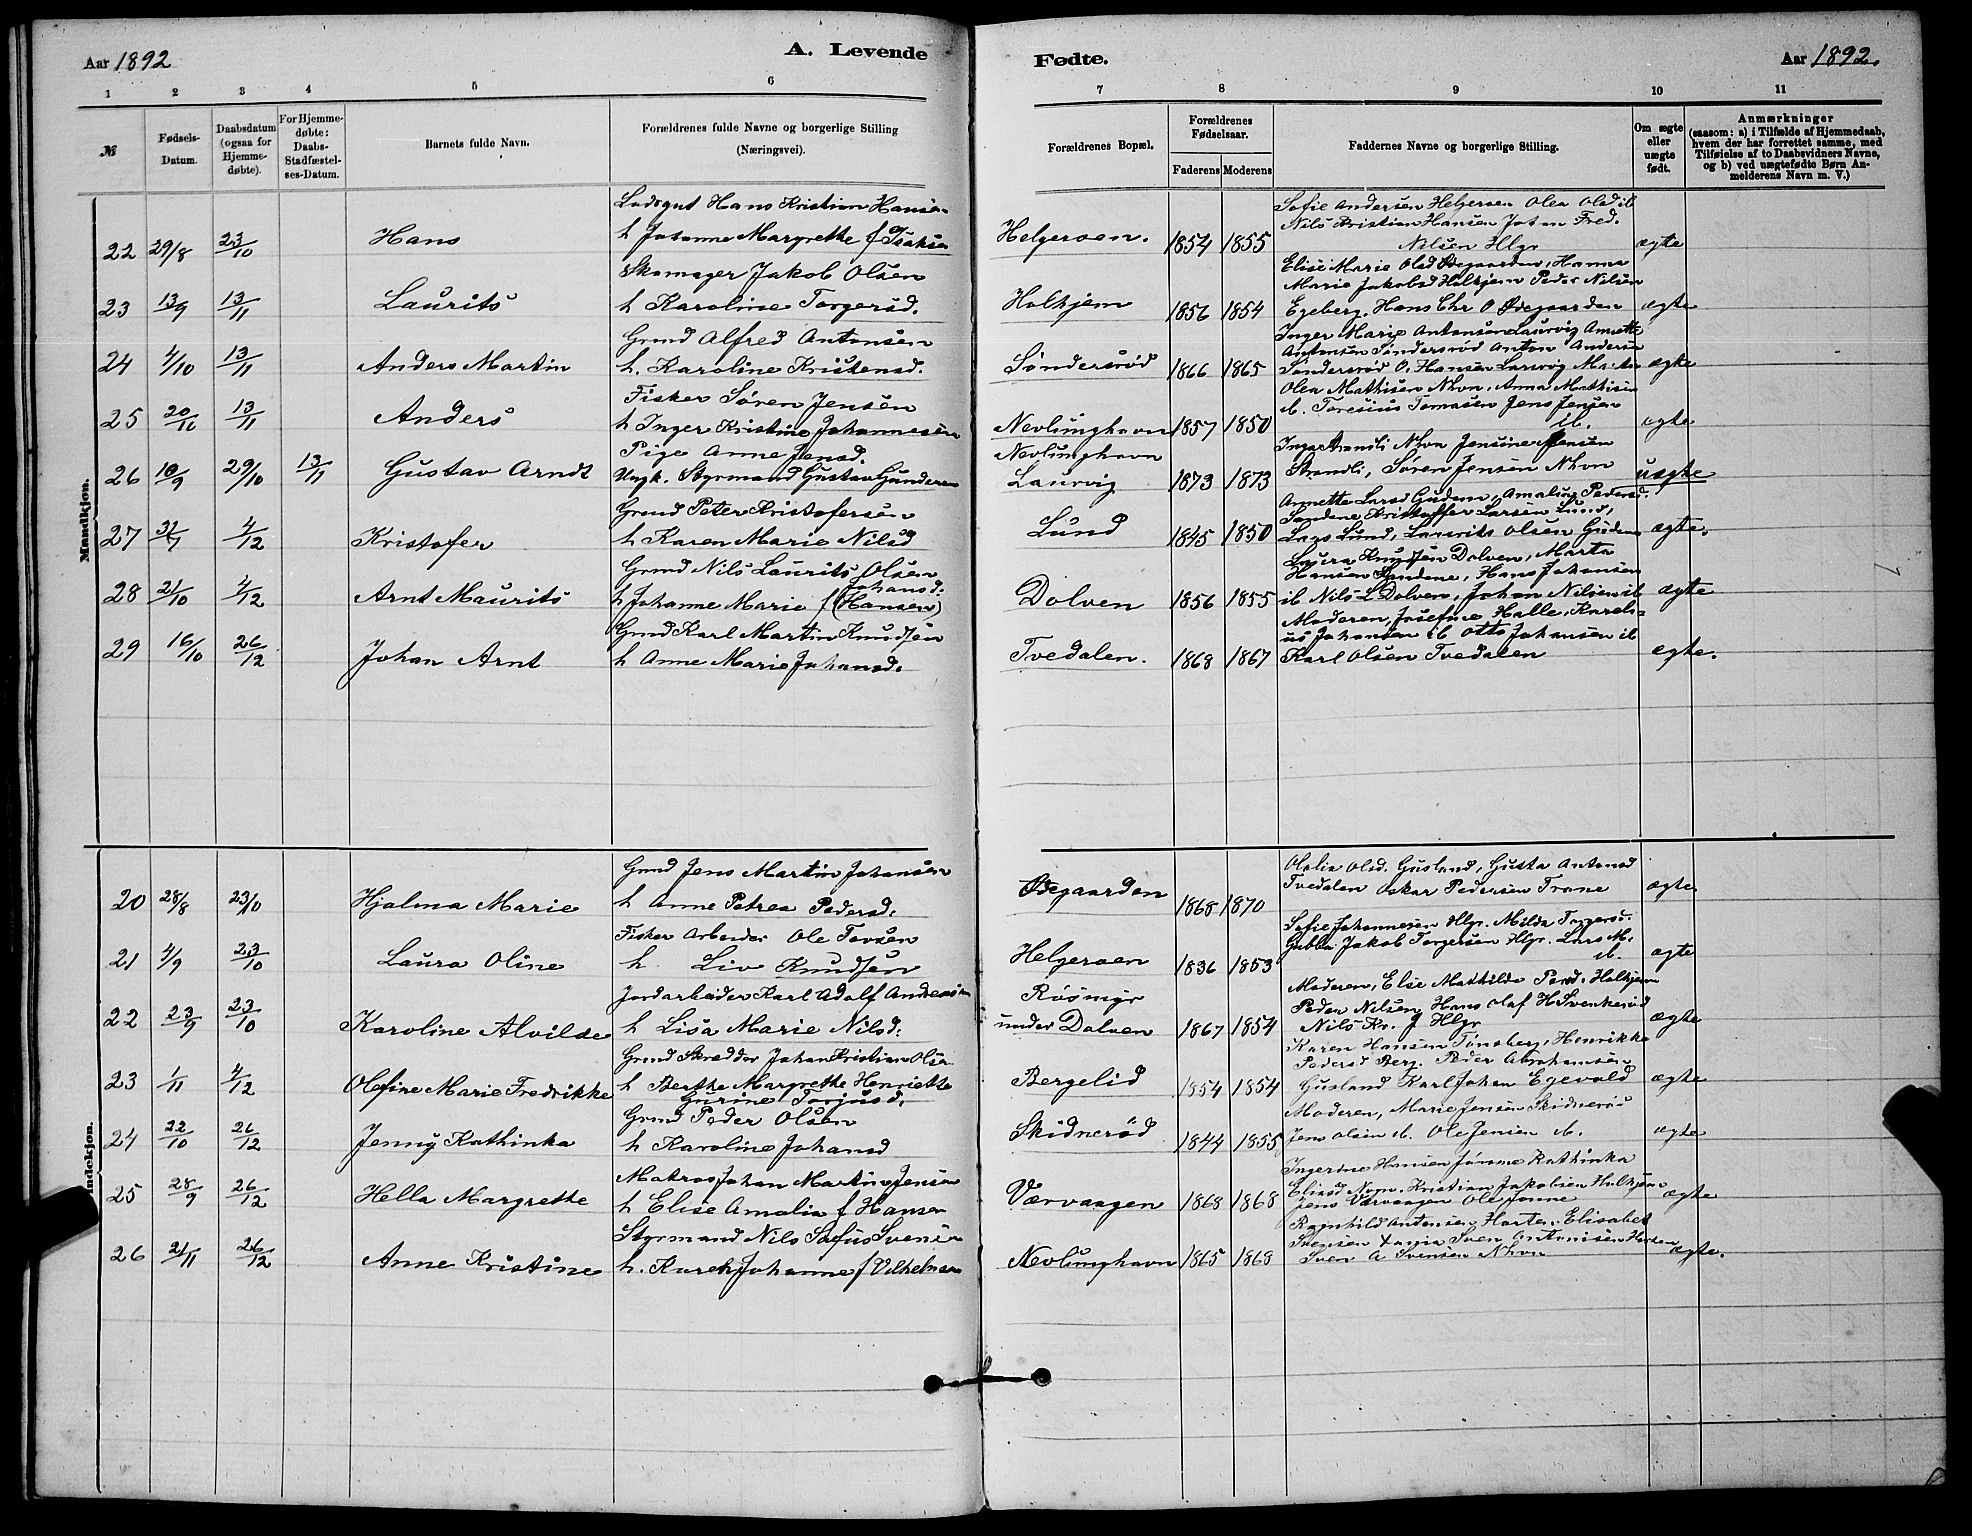 Aar 1892
A. Levende
Fødte.
Aar 1892.
1 2 3 4 5 6 7 8 9 10 11
№
Fødsels-Datum.
Daabsdatum (ogsaa for Hjemme-døbte).
For Hjemme-døbte: Daabs-Stadfæstel-ses-Datum.
Barnets fulde Navn.
Forældrenes fulde Navne og borgerlige Stilling (Næringsvei).
Forældrenes Bopæl.
Forældrenes Fødselsaar.
Faderens Moderens
Faddernes Navne og borgerlige Stilling.
Om ægte eller uægte født.
Anmærkninger
(saasom: a) i Tilfælde af Hjemmedaab,
hvem der har forrettet samme, med
Tilføielse af to Daabsvidners Navne,
og b) ved uægtefødte Børn An-
melderens Navn m. V.)
Mandkjøn.
Lodsgut Hans Kristian Hansen
Sofie Andersen Helgeroen Olea Olsd ib
Nils Kristian Hansen Johan Fred.
22 29/8 23/10 Hans h Johanne Margrethe f Isaksen Helgeroen. 1854 1855 Nilsen Hlgr ægte
Skomager Jakob Olsen
Elise Marie Olsd Ødegaarden, Hanna
Marie Jakobsd Holhjem Peder Nilsen
23 13/9 13/11 Laurits h Karoline Torgersd. Holhjem 1856 1854 Egeberg. Hans Chr O Ødegaarden ægte
Grmd Alfred Antonsen
Inger Marie Antonsen Laurvig Annette
Antonsen Søndersrød Anton Andersen
24 4/10 13/11 Anders Martin h. Karoline Kristensd. Søndersrød 1866 1865 Søndersrød O. Hansen Larvig ægte
Fisker Søren Jensen
Olea Mathisen Nhvn. Anna Mathisen
ib. Toresius Tomasen Jens Jensen
25 20/10 13/11 Anders h Inger Kristine Johannesen Nevlunghavn 1857 1850 ib. ægte
Pige Anne Jensd.
Nevlunghavn
Inga Strandli Nhvn Jensine Jensen
26 10/9 29/10 13/11 Gustav Arndt Ungk. Styrmand Gustav Gundersen Laurvig 1873 1873 Strandli, Søren Jensen Nhvn uægte
Grmd Peter Kristofersen
Annette Larsd Gudem, Amalius Pedersd.
Sandene Kristoffer Larsen Lund,
27 31/7 4/12 Kristofer h Karen Marie Nilsd Lund 1845 1850 Lars Lund, Laurits Olsen Gudem ægte.
Grmd Nils Laurits Olsen
Johansd.
Laura Knudsen Dolven, Marta
Hansen Sandene, Hans Johansen
28 21/10 4/12 Arnt Maurits h Johanne Marie f (Hansen) Dolven 1856 1855 ib Nils L Dolven, Johan Nilsen ib ægte
Grmd Karl Martin Knudsen
Moderen, Josefine Halle, Karels-
us Johansen ib Otto Johansen ib
29 16/10 26/12 Johan Arnt h Anne Marie Johansd. Tvedalen. 1868 1867 Karl Olsen Tvedalen ægte.
indekjøn.
Grmd Jens Martin Johansen
Olalia Olsd. Gusland, Gusta Antonsd
20 28/8 23/10 Hjalma Marie h Anne Petrea Pedersd. Ødegaarden 1868 1870 Tvedalen Oskar Pedersen Trane ægte
Fisker Arbeider Ole Torsen
Sofie Johannesen Hlgr. Milda Torgersd.
Gubba Jakob Torgersen Hlgr. Lars M.
21 4/9 23/10 Laura Oline h Liv Knudsen Helgeroen 1836 1853 ib. ægte
Jordarbeider Karl Adolf Andersen
Røsmyr
Moderen, Else Mathilde Persd. Holhjem
Peder Nilsen, Hans Olaf H Svenkerød
22 23/9 23/10 Karoline Alvilde h Lisa Marie Nilsd. under Dolven 1867 1854 Nils Kr. J Hlgr ægte
Grmd Skrædder Johan Kristian Olsen
Karen Hansen Tønsberg, Henrikke
Pedersd Berg. Peder Abrahamsen
23 1/11 4/12 Olefine Marie Fredrikke h Berthe Margrethe Henriette Bergelid 1854 1854 Gusland Karl Johan Egevold ægte
Gurine Torjusd.
Grmd Peder Olsen
Moderen, Marie Jensen Skidnerød
24 22/10 26/12 Jenny Kathinka h Karoline Johansd Skidnerød 1844 1855 Jens Olsen ib. Ole Jensen ib. ægte
Matros Johan Martin Jensen
Ingerine Hansen Jonne Kathinka
Eliasd Kristian Jakobsen Holhjem
25 28/9 26/12 Hella Margrethe h Elise Amalia f Hansen Værvaagen 1868 1868 Jens Værvaagen Ole Jonne ægte
Styrmand Nils Sofus Svensen
Ragnhild Antonsen Harten. Elisabet
Svensen Sven Antonisen Harten
26 21/11 26/12 Anne Kristine h. Karen Johanne f Vilhelmsen Nevlunghavn 1865 1868 Sven A Svensen Nhvn ægte.